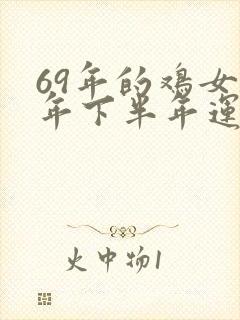 69年的鸡女
年下半年運
火中物1